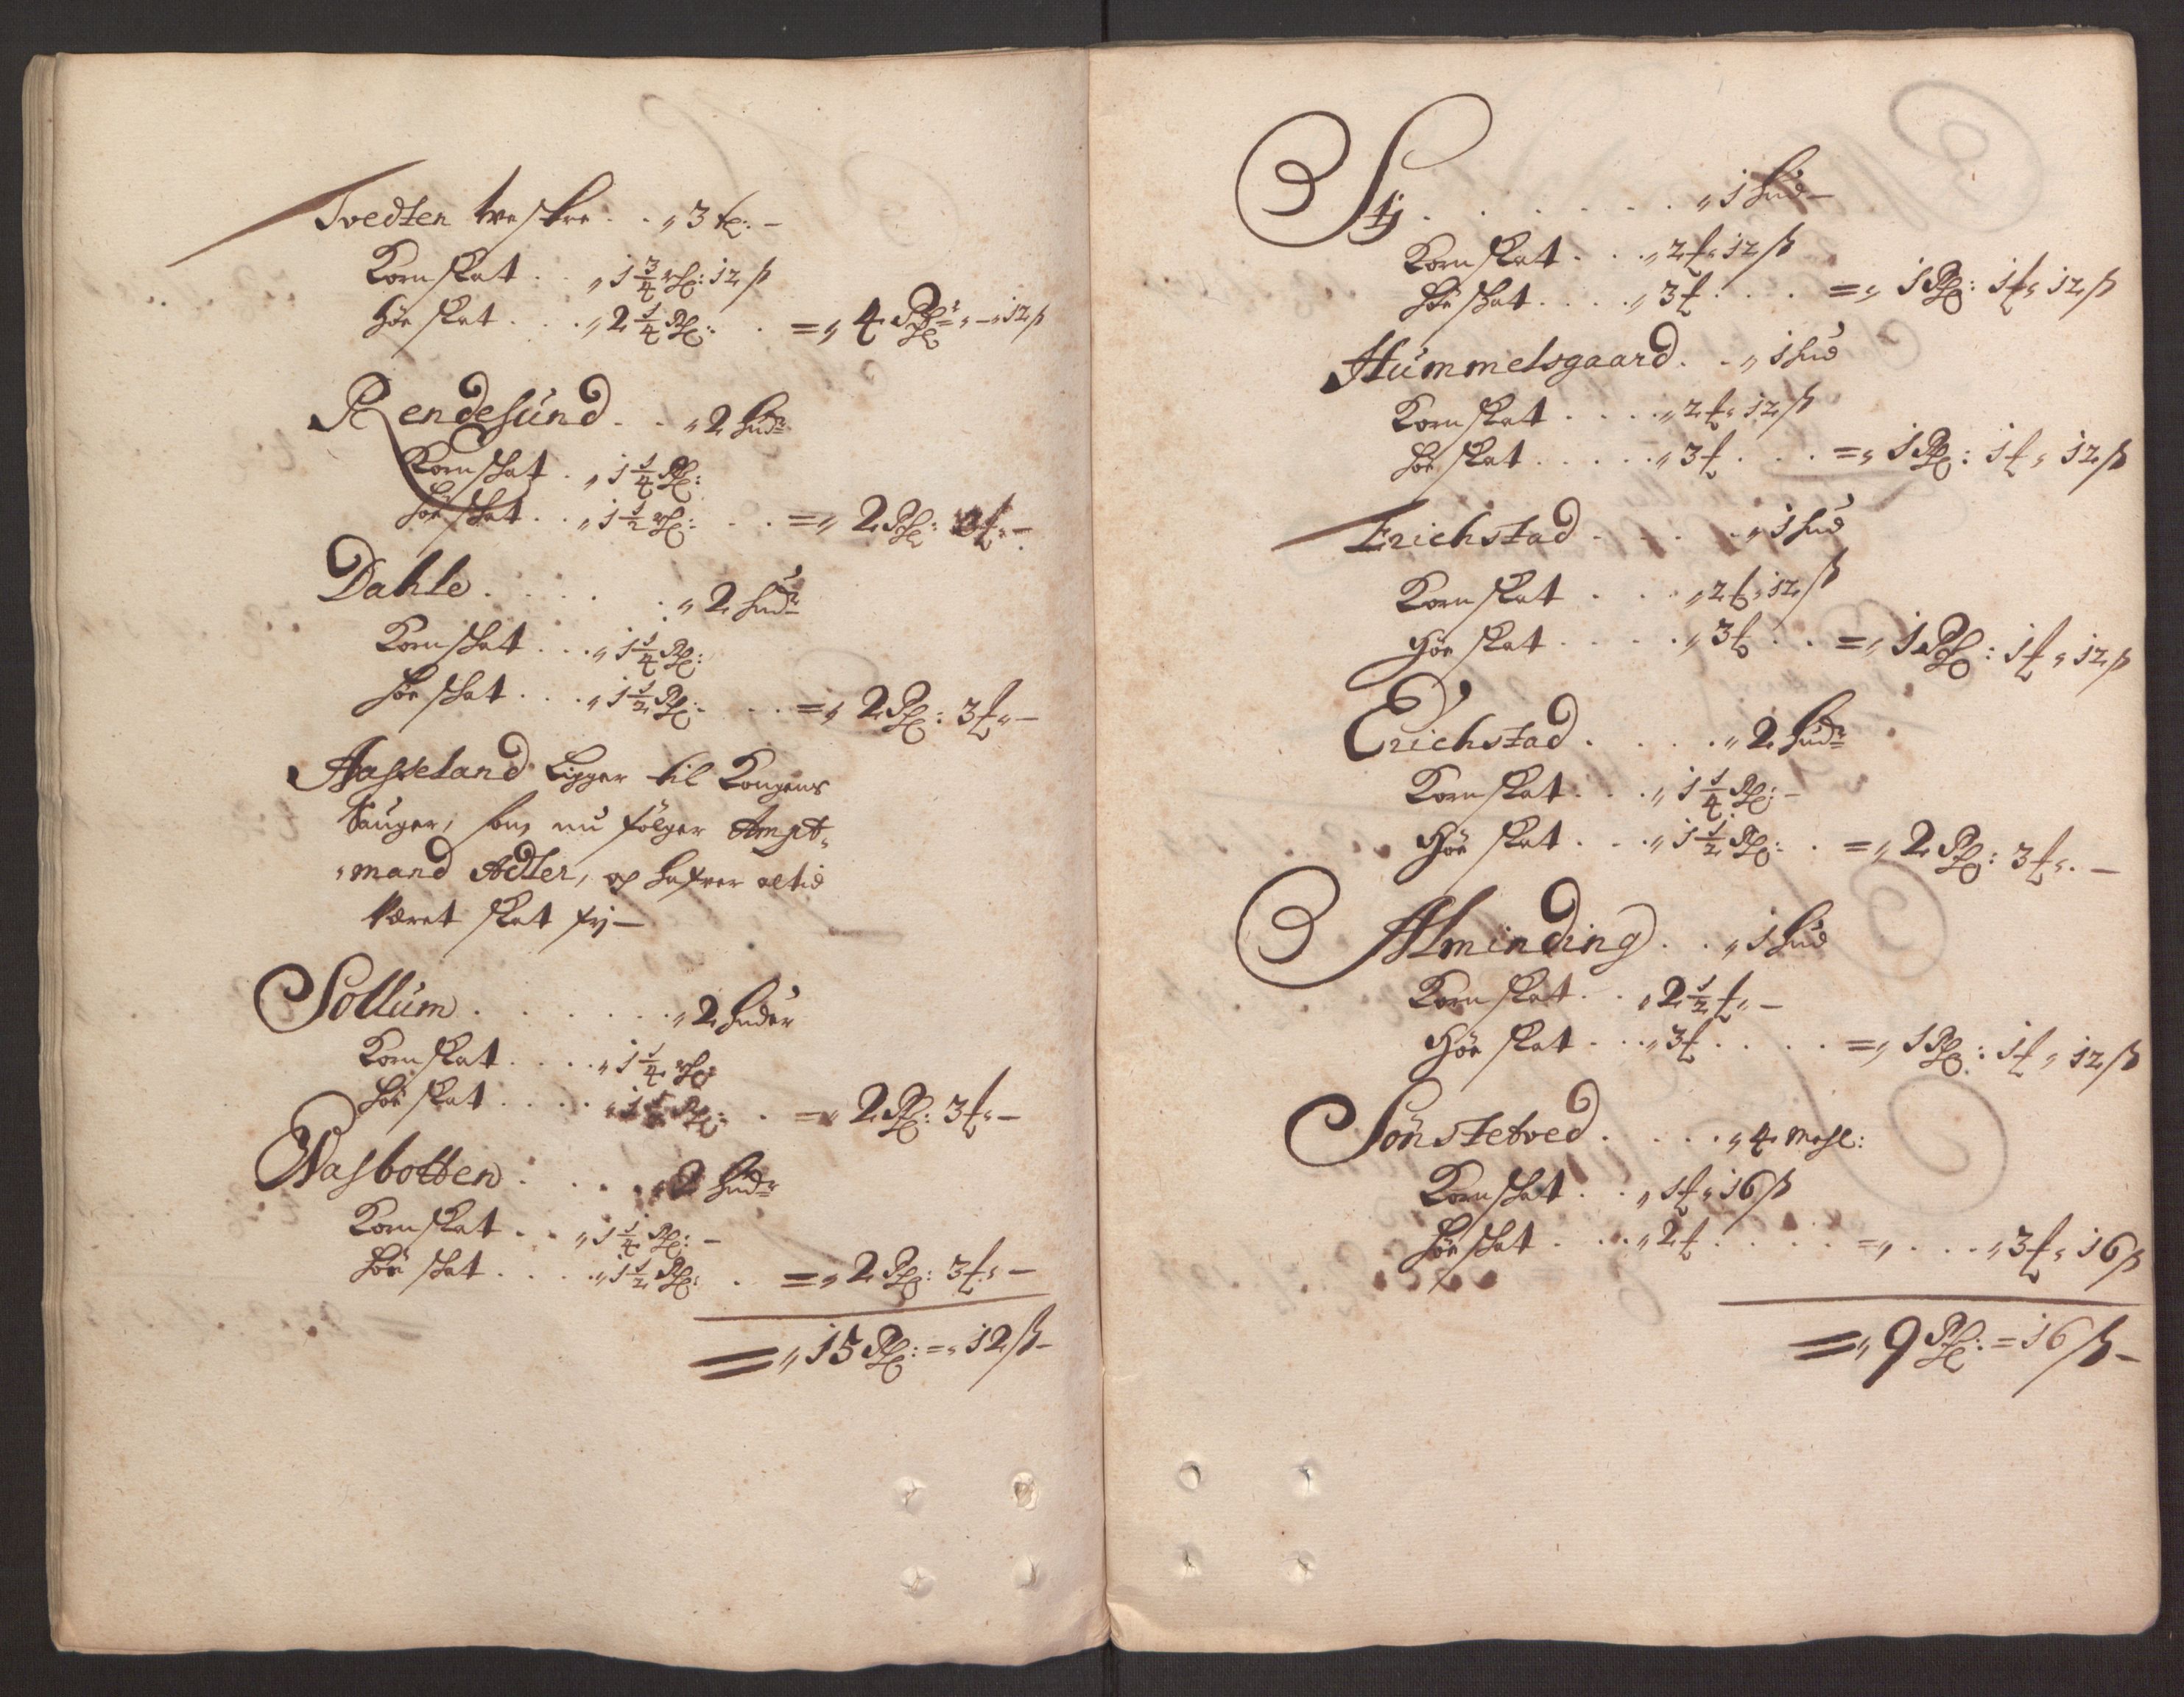 Tvedten westre . . „ 3 tl: –
Kornskat . . „ 1 3/4 rd: 12 ß
Höe skat . . . „ 2 1/4 Rd: . = „ 4 Rdr „ – „ 12 ß
Rendesund . . „ 2 hudr
Kornskat . „ 1 1/4 Rd:
höe skat . . „ 1 1/2 rd: . . = „ 2 Rd: 3 f „ –
Dahle . . . . . „ 2 hudr
Kornskat . . . „ 1 1/4 Rd:
höe skat . . . „ 1 1/2 Rd: . . = „ 2 Rd: 3 f „ –
Aasseland Ligger til Kongens
Sauger, som nu fölger Ampt-
mand Adler, og hafver altid
Været skat fri –
Sollum . . . . . . „ 2 huder
Kornskat . . . . „ 1 1/4 rd:
höe skat . . . . „ 1 1/2 Rd: . = „ 2 Rd: 3 f „ –
Wasbotten . . . . „ 2 hudr
Kornskat . . „ 1 1/4 Rd: –
höe skat . . . . „ 1 1/2 Rd: . = „ 2 Rd: 3 f „ –
= „ 15 Rd: = „ 12 ß –
Stÿ . . . . . . . „ 1 hud –
Kornskat . . . „ 2 f „ 12 ß
höe skat . . . . „ 3 f . . . = „ 1 Rd: 1 f „ 12 ß
Hummelsgaard . . „ 1 hud
Kornskat . . . . „ 2 f „ 12 ß
höe skat . . . . . „ 3 f . . . = „ 1 Rd: 1 f „ 12 ß
Erichstad . . . . . „ 1 hud
Kornskat . . . „ 2 f „ 12 ß
Höe skat . . . . . „ 3 f . . = „ 1 Rd: 1 f „ 12 ß
Erichstad . . . . . „ 2 hudr
Kornskat . . . „ 1 1/4 Rd: –
Höe skat . . . „ 1 1/2 Rd: . = „ 2 Rd: 3 f „ . –
Alminding . . „ 1 hud
Kornskat . . „ 2 1/2 f „ –
Höe skat . . . „ 3 f . . . . = „ 1 Rd: 1 f „ 12 ß
Sönstetved . . . . „ 4 mehl:
Kornskat . . „ 1 f „ 16 ß
höe skat . . . „ 2 f . . . . = „ . . . „ 3 f „ 16 ß
= „ 9 Rd: = 16 ß –